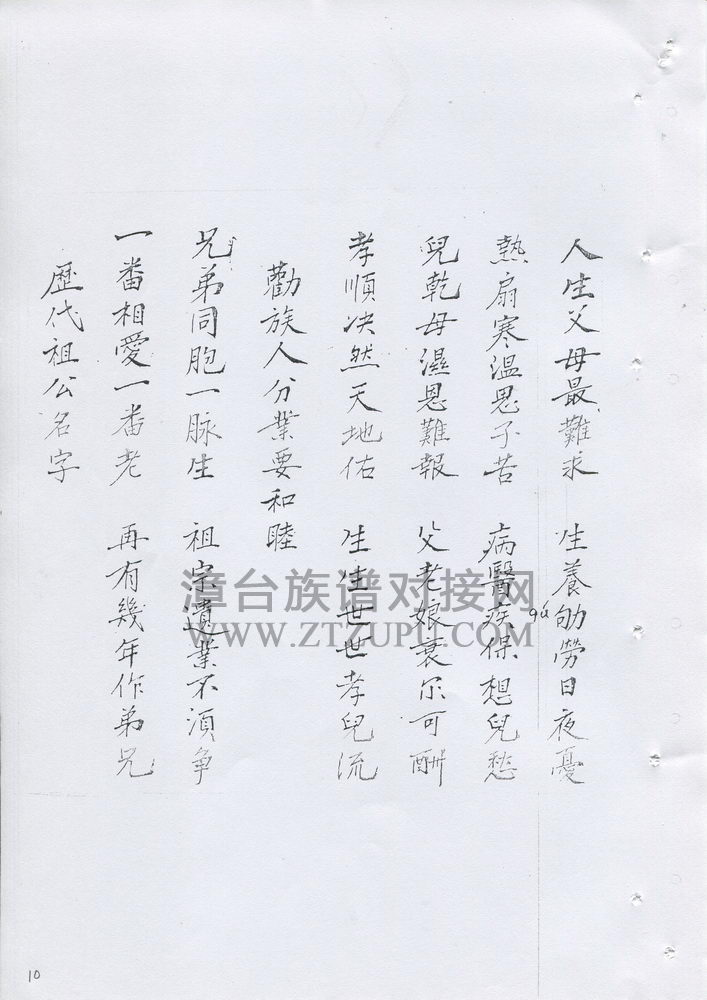 人生父母最難求 生養劬勞日夜憂
gú
熱扇寒溫思子苦 病醫疾保想兒愁
兒乾母濕恩難報 父老娘衰尔可酬
孝順决然天地佑 生生世世孝兒流
勸族人分業要和睦
兄弟同胞一脉生 祖宗遺業不須争
一番相愛一番老 再有幾年作弟兄
歷代祖公名字
漳台族谱对接网
WWW.ZTZUPU.COM
10